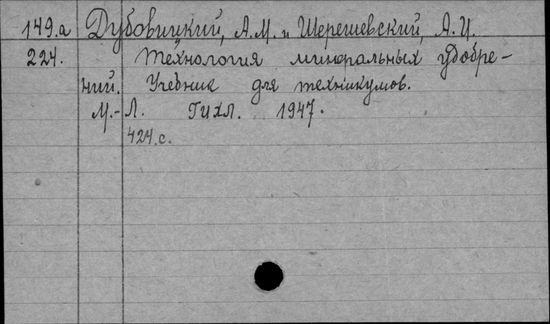 149.а Дубовицкий, А.М. и Шерешевский, А.И.
224. Технология минеральных удобре-
ний. Учебник для техникумов.
М.-Л. ГИХЛ. 1947.
424.с.